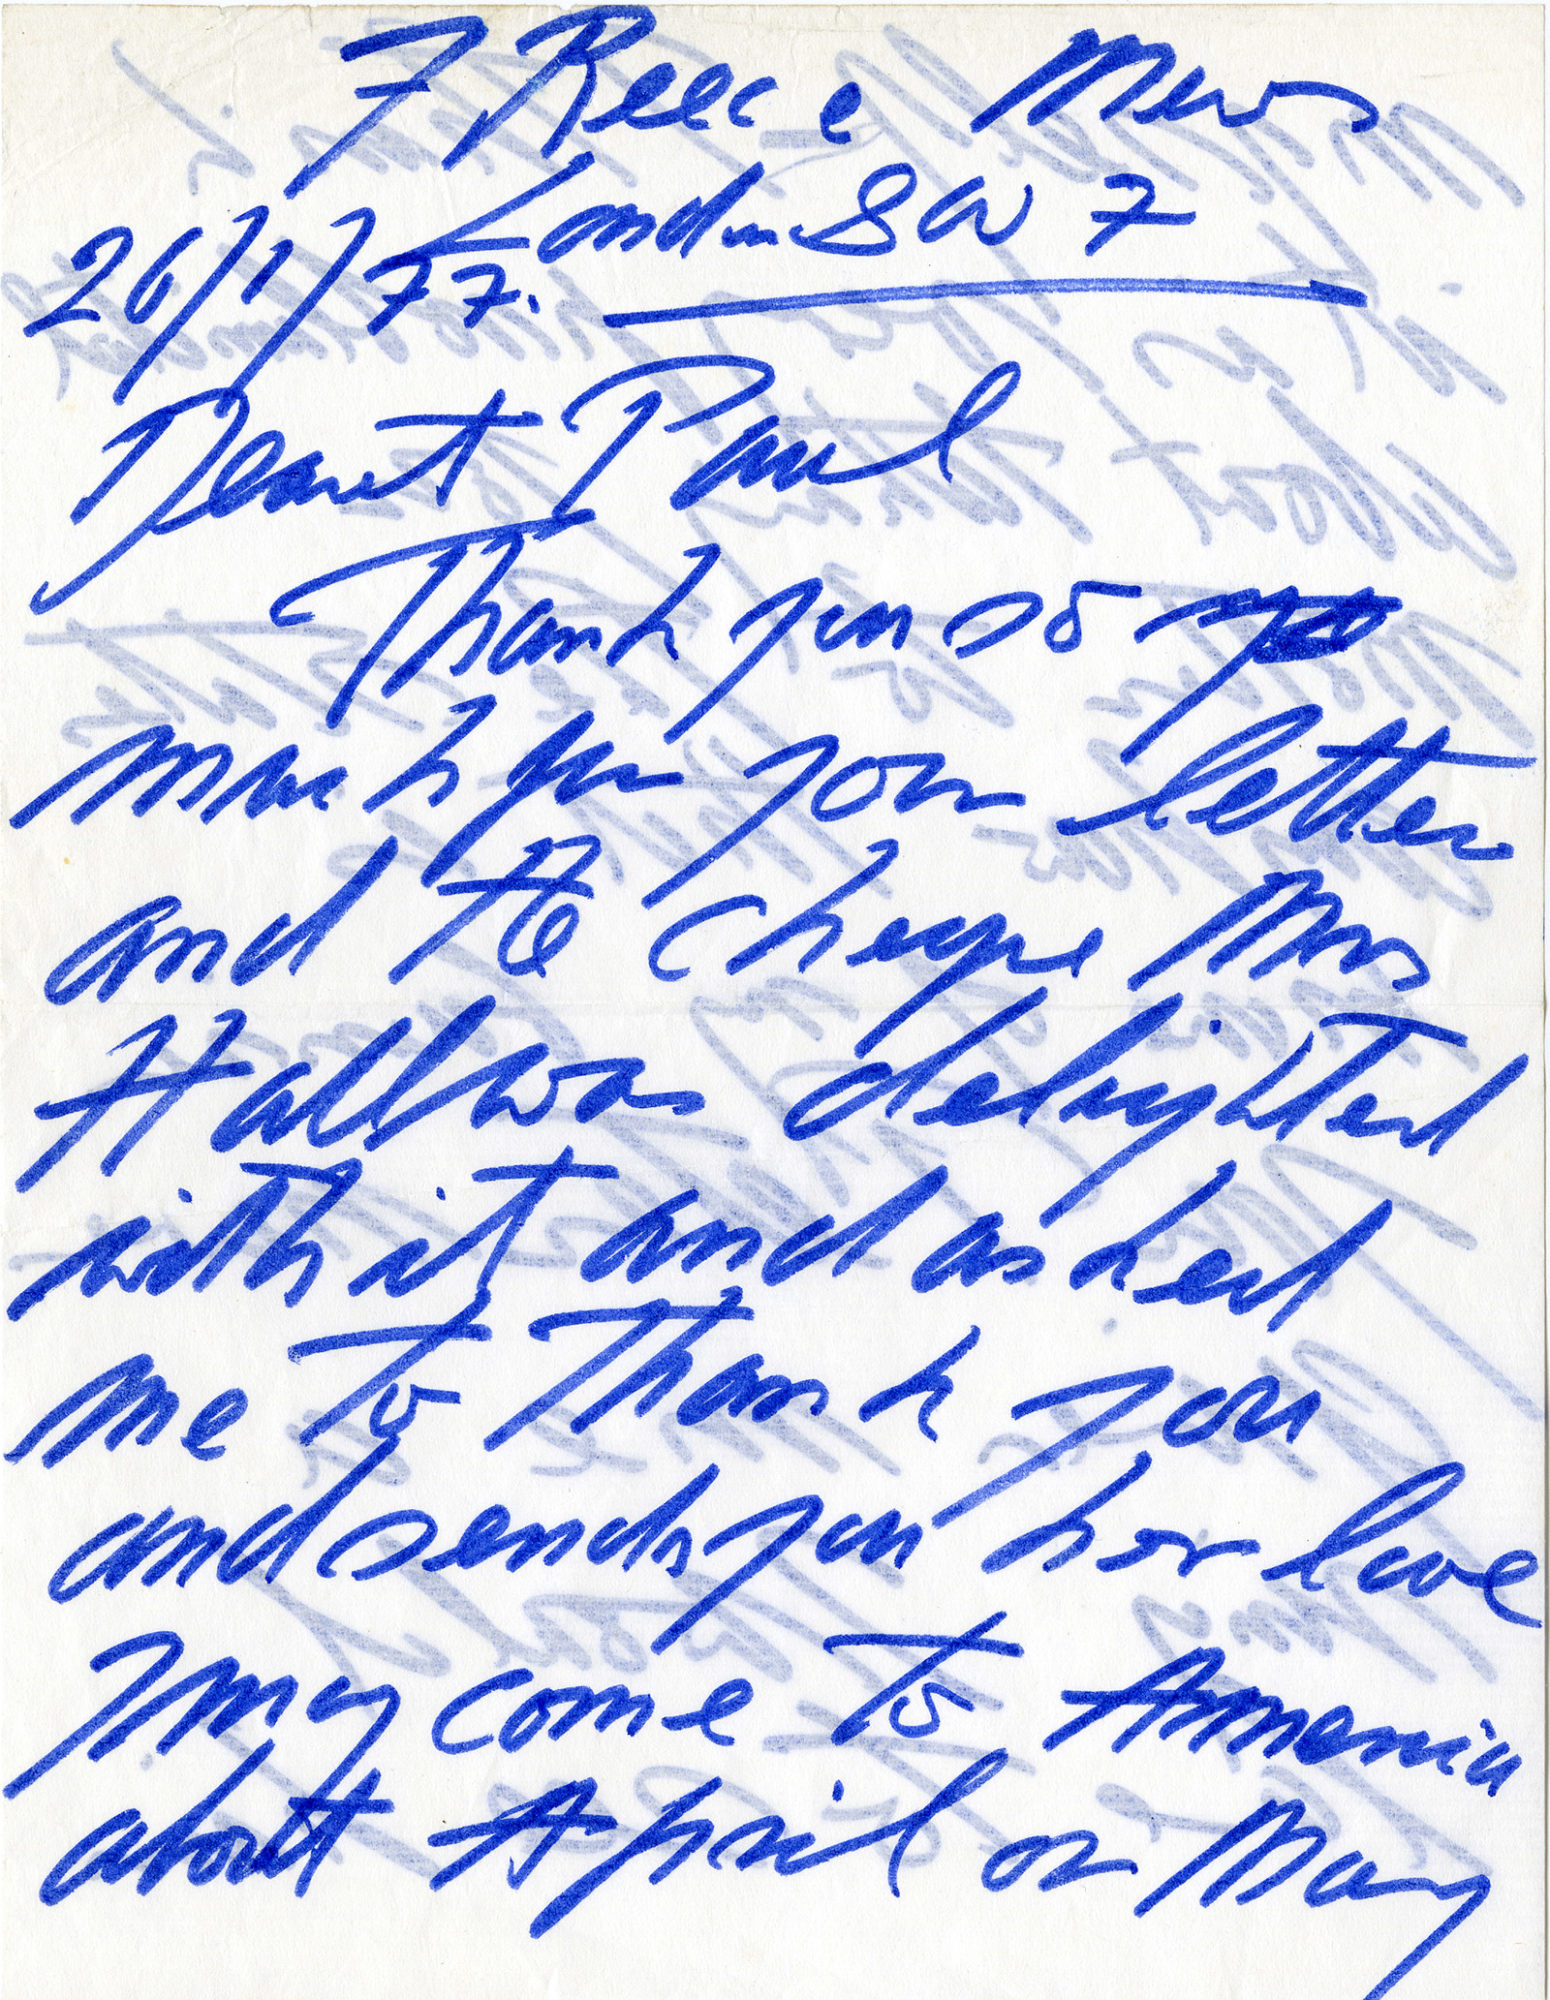 7 Reece Mews
London SW 7
26/1/77.
Dearest Paul
Thank you so
much for your letter
and the cheque Mrs
Hall was delighted
with it and asked
me to thank you
and sends you her love
I may come to Armenia
about April or May